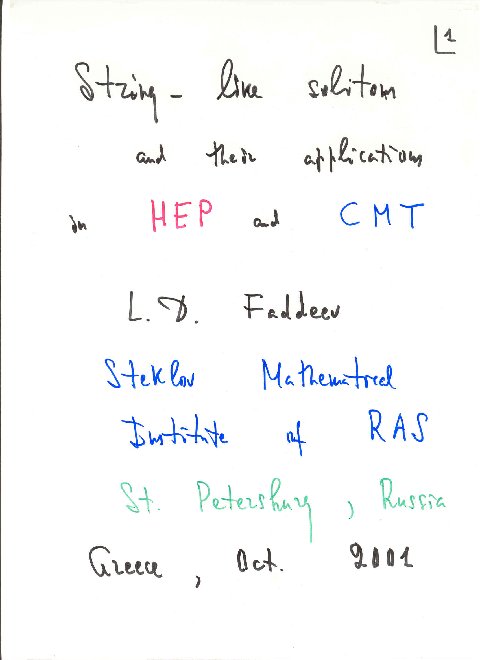 1
String-like solitons
and their applications
in HEP and CMT
L. D. Faddeev
Steklov Mathematical
Institute of RAS
St. Petersburg, Russia
Greece, Oct. 2001